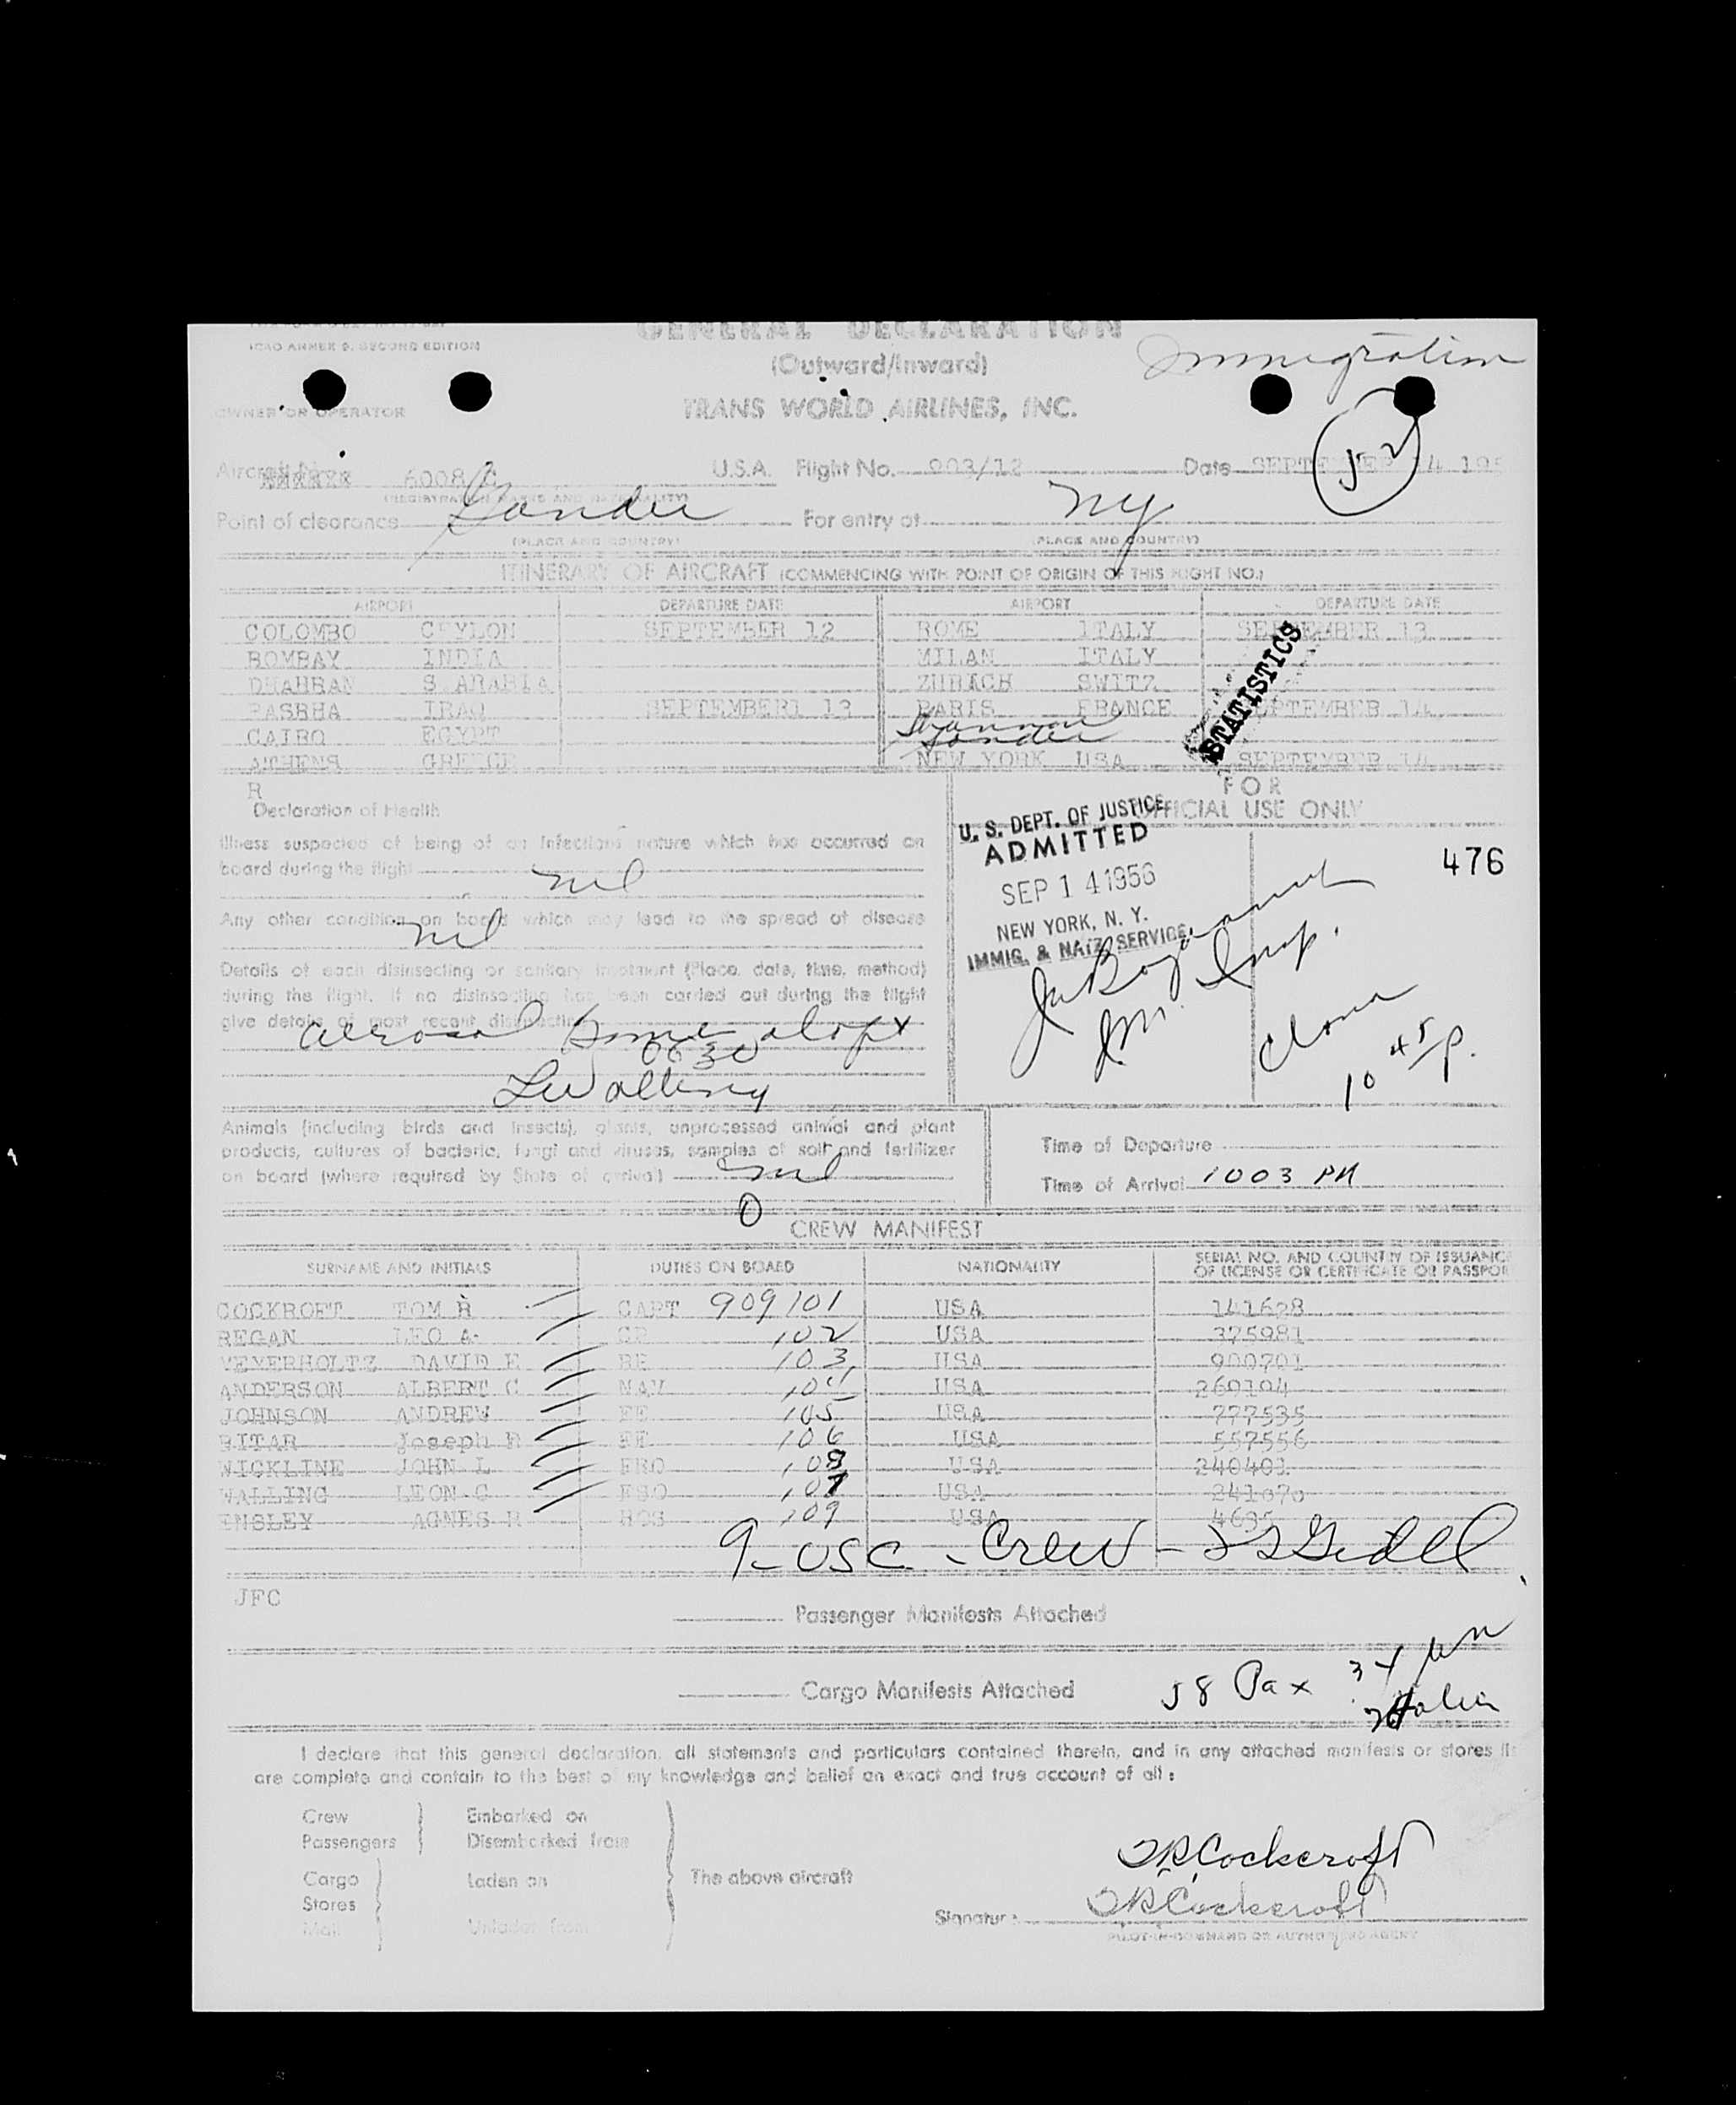 ICAO ANNEX 9, SECOND EDITION
GENERAL DECLARATION
(Outward/Inward)
Immigration
OWNER OR OPERATOR
TRANS WORLD AIRLINES, INC.
52
Aircraft 6008 U.S.A. Flight No. 903/12 Date SEPTEMBER 14 195
(REGISTRATION MARKS AND NATIONALITY)
Point of clearance Gander For entry at NY
(PLACE AND COUNTRY) (PLACE AND COUNTRY)
ITINERARY OF AIRCRAFT (COMMENCING WITH POINT OF ORIGIN OF THIS FLIGHT NO.)
AIRPORT DEPARTURE DATE AIRPORT DEPARTURE DATE
COLOMBO CEYLON SEPTEMBER 12 ROME ITALY SEPTEMBER 13
BOMBAY INDIA MILAN ITALY
DHAHRAN S ARABIA ZURICH SWITZ
BASRHA IRAQ SEPTEMBER1 13 PARIS FRANCE SEPTEMBER 14
CAIRO EGYPT Shannon
Gander
ATHENS GREECE NEW YORK USA SEPTEMBER 14
STATISTICS
R
Declaration of Health
FOR
OFFICIAL USE ONLY
Illness suspected of being of an infectious nature which has occurred on
board during the flight nil
Any other condition on board which may lead to the spread of disease
nil
Details of each disinsecting or sanitary treatment (Place, date, time, method)
during the flight. If no disinsecting has been carried out during the flight
give details of most recent disinsecting
aerosol bomb aloft
0630
LWalling
U. S. DEPT. OF JUSTICE
ADMITTED
SEP 14 1956
NEW YORK, N. Y.
IMMIG. & NATZ. SERVICE
476
Im. Insp.
10 45 P.
Animals (including birds and insects), plants, unprocessed animal and plant
products, cultures of bacteria, fungi and viruses, samples of soil and fertilizer
on board (where required by State of arrival) nil
0
Time of Departure
Time of Arrival 1003 PM
CREW MANIFEST
SURNAME AND INITIALS DUTIES ON BOARD NATIONALITY SERIAL NO. AND COUNTRY OF ISSUANC
OF LICENSE OR CERTIFICATE OR PASSPOR
COCKROFT TOM R CAPT 909101 USA 141628
REGAN LEO A 102 USA 375981
MEYERHOLTZ DAVID E 103 USA 900701
ANDERSON ALBERT C NAV 104 USA 269194
JOHNSON ANDREW FE 105 USA 777535
BITAR Joseph FE 106 USA 557556
WICKLINE JOHN L FRO 108 USA 240401
WALLING LEON C FSO 107 USA 241070
ENSLEY AGNES R HOS 109 USA
9 - USC - Crew -
JFC
Passenger Manifests Attached
Cargo Manifests Attached
58 Pax
I declare that this general declaration, all statements and particulars contained therein, and in any attached manifests or stores li
are complete and contain to the best of my knowledge and belief an exact and true account of all :
Crew Embarked on
Passengers Disembarked from
Cargo Laden on The above aircraft
Stores
Mail Unladen from
TRCockcroft
Signature TRCockcroft
PILOT-IN-COMMAND OR AUTHORIZED AGENT